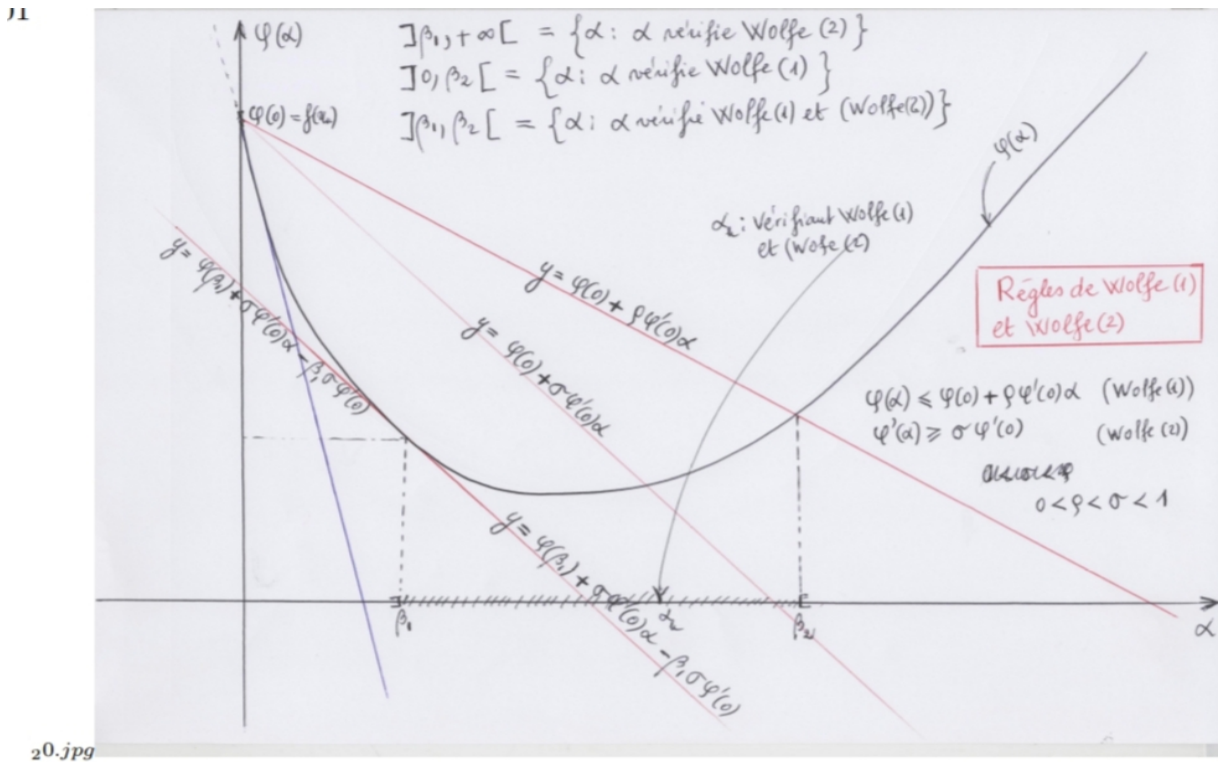 φ(α)
]β₁, +∞[ = {α: α vérifie Wolfe (2)}
]0, β₂[ = {α: α vérifie Wolfe (1) }
]β₁, β₂[ = {α: α vérifié Wolfe(1) et (Wolfe(2))}
φ(0) = f(xₖ)
φ(α)
αₖ: Vérifiant Wolfe(1)
et (Wofe(2)
y = φ(β₁) + σφ'(0)α - β₁σφ'(0)
y = φ(0) + ρφ'(0)α
y = φ(0) + σφ'(0)α
Règles de Wolfe(1)
et Wolfe(2)
φ(α) ⩽ φ(0) + ρφ'(0)α (Wolfe(1))
φ'(α) ⩾ σφ'(0) (Wolfe(2))
0 < ρ < σ < 1
y = φ(β₁) + σφ'(0)α - β₁σφ'(0)
β₁
αₖ
β₂
α
20.jpg